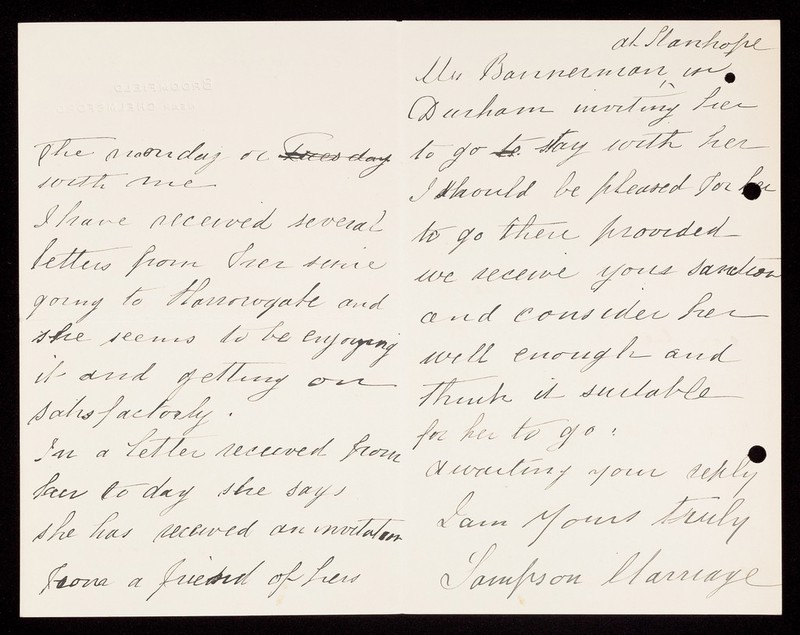 BROOMFIELD
NEAR CHELMSFORD
the monday or Tuesday
with me
I have received several
letters from her since
going to Harrowgate and
she seems to be enjoying
it and getting on
satisfactorly.
In a letter received from
her to day she says
she has received an invitation
from a friend of hers
at Stanhope
Mrs Bannerman, in
Durham inviting her
to go to stay with her
I should be pleased for her
to go there provided
we receive your sanction
and consider her
well enough and
think it suitable
for her to go:
awaiting your reply
I am Yours truly
Sampson Marriage